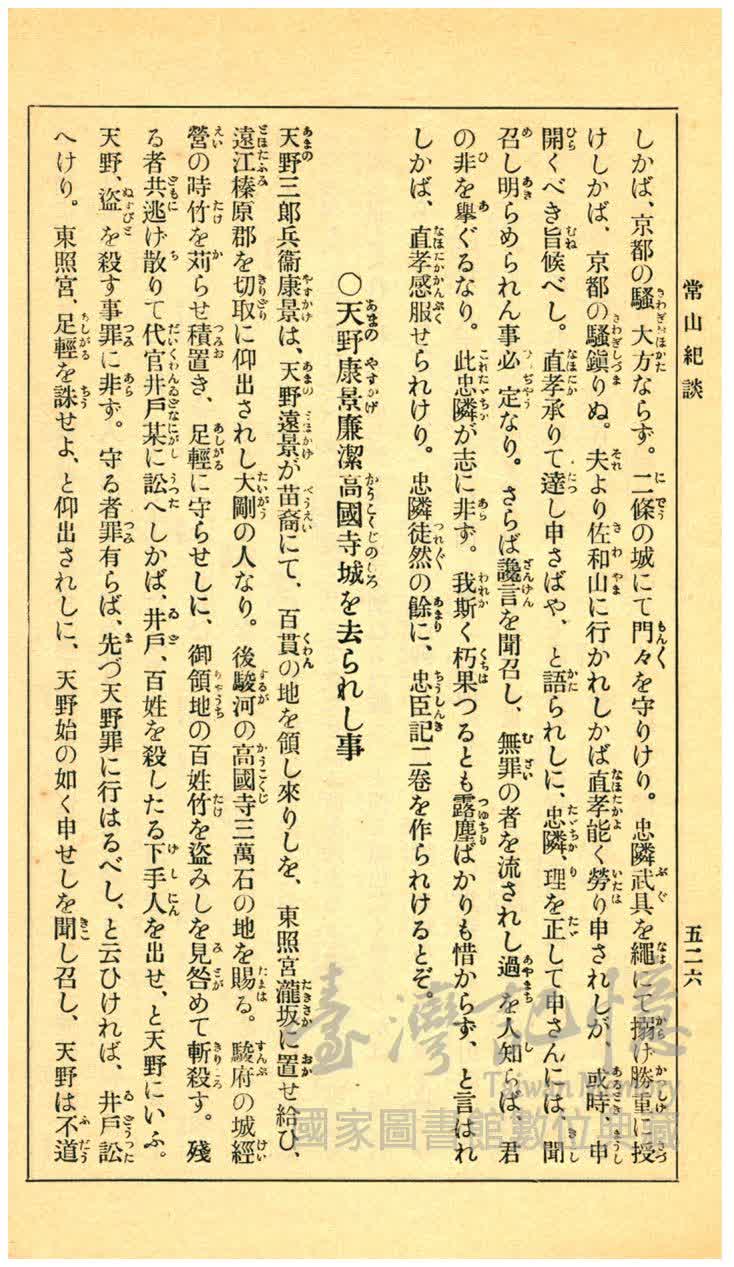 常山紀談
五二六
しかば、京都の騷大方ならず。二條の城にて門々を守りけり。忠隣武具を繩にて搦け勝重に授
けしかば、京都の騷鎭りぬ。夫より佐和山に行かれしかば直孝能く勞り申されしが、或時、申
開くべき旨候べし。直孝承りて達し申さばや、と語られしに、忠隣、理を正して申さんには、聞
召し明らめられん事必定なり。さらば讒言を聞召し、無罪の者を流されし過を人知らば、君
の非を擧ぐるなり。此忠隣が志に非ず。我斯く朽果つるとも露塵ばかりも惜からず、と言はれ
しかば、直孝感服せられけり。忠隣徒然の餘に、忠臣記二卷を作られけるとぞ。
○天野康景廉潔高國寺城を去られし事
天野三郎兵衞康景は、天野遠景が苗裔にて、百貫の地を領し來りしを、東照宮瀧坂に置せ給ひ、
遠江榛原郡を切取に仰出されし大剛の人なり。後駿河の高國寺三萬石の地を賜る。駿府の城經
營の時竹を苅らせ積置き、足輕に守らせしに、御領地の百姓竹を盜みしを見咎めて斬殺す。殘
る者共逃げ散りて代官井戸某に訟へしかば、井戸、百姓を殺したる下手人を出せ、と天野にいふ。
天野、盜を殺す事罪に非ず。守る者罪有らば、先づ天野罪に行はるべし、と云ひければ、井戸訟
へけり。東照宮、足輕を誅せよ、と仰出されしに、天野始の如く申せしを聞し召し、天野は不道
臺灣記憶
Taiwan Memory
國家圖書館數位典藏